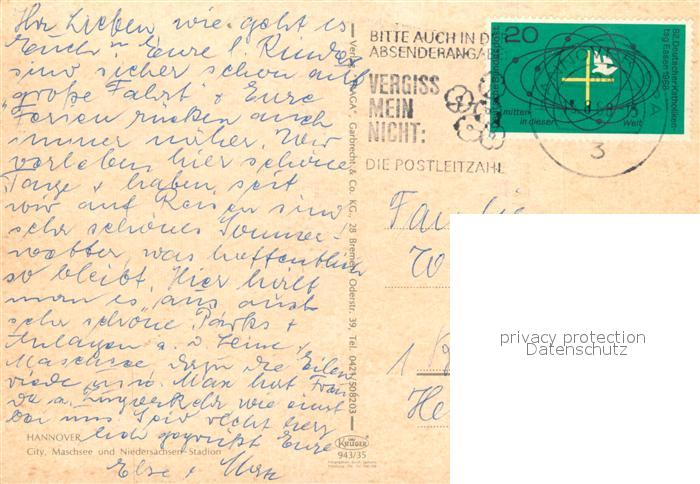 Ihr Lieben, wie geht es
Euch u. Eure l. Kinder
sind sicher schon auf
große Fahrt + Eure
Ferien rücken auch
immer näher. Wir
verleben hier schöne
Tage + haben seit
wir auf Reisen sind
sehr schönes Sommer-
wetter, was hoffentlich
so bleibt. Hier hält
man es aus auch
sehr schöne Parks +
Anlagen a. d. Leine,
Maschsee dazu die Eilen
riede usw. Man hat Freu
de a. wie einst
bei uns. Seid recht herz
lich gegrüßt Eure
Else + Max
HANNOVER
City, Maschsee und Niedersachsen-Stadion
Garbrecht & Co. KG., 28 Bremen, Oderstr. 39, Tel. 0421/508203
KRÜGER
943/35
BITTE AUCH IN D
ABSENDERANGA
VERGISS
MEIN
NICHT:
DIE POSTLEITZAHL
3
20
Deutsche Bundespost
mitten
in dieser Welt
82. Deutscher Katholiken-
tag Essen 1968
Fa
W
1
He
privacy protection
Datenschutz